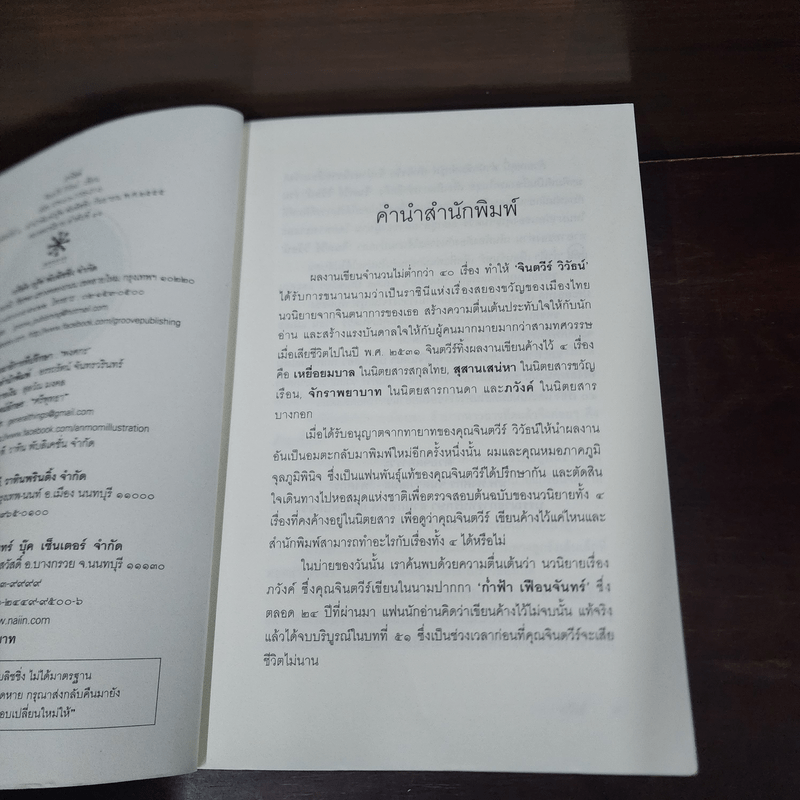 กรุงเทพฯ ๑๐๒๒๐
www.facebook.com/groovepublishing
พับลิเคชั่น จำกัด
ราทินพรินติ้ง จำกัด
อ.เมือง นนทบุรี ๑๑๐๐๐
๔๖๕-๐๑๐๐
บุ๊ค เซ็นเตอร์ จำกัด
อ.บางกรวย จ.นนทบุรี ๑๑๑๓๐
๓-๙๙๙๙
๐-๒๔๔๙-๙๕๐๐-๖
w.naiin.com
บาท
บลิชชิ่ง ไม่ได้มาตรฐาน
ดหาย กรุณาส่งกลับคืนมายัง
อบเปลี่ยนใหม่ให้"
คำนำสำนักพิมพ์
ผลงานเขียนจำนวนไม่ต่ำกว่า ๔๐ เรื่อง ทำให้ 'จินตวีร์ วิวัธน์'
ได้รับการขนานนามว่าเป็นราชินีแห่งเรื่องสยองขวัญของเมืองไทย
นวนิยายจากจินตนาการของเธอ สร้างความตื่นเต้นประทับใจให้กับนัก
อ่าน และสร้างแรงบันดาลใจให้กับผู้คนมากมายมากว่าสามทศวรรษ
เมื่อเสียชีวิตไปในปี พ.ศ. ๒๕๓๑ จินตวีร์ทิ้งผลงานเขียนค้างไว้ ๔ เรื่อง
คือ เหยื่อยมบาล ในนิตยสารสกุลไทย, สุสานเสน่หา ในนิตยสารขวัญ
เรือน, จักราพยาบาท ในนิตยสารกานดา และภวังค์ ในนิตยสาร
บางกอก
เมื่อได้รับอนุญาตจากทายาทของคุณจินตวีร์ วิวัธน์ให้นำผลงาน
อันเป็นอมตะกลับมาพิมพ์ใหม่อีกครั้งหนึ่งนั้น ผมและคุณหมอภาคภูมิ
จุลภูมิพินิจ ซึ่งเป็นแฟนพันธุ์แท้ของคุณจินตวีร์ได้ปรึกษากัน และตัดสิน
ใจเดินทางไปหอสมุดแห่งชาติเพื่อตรวจสอบต้นฉบับของนวนิยายทั้ง ๔
เรื่องที่คงค้างอยู่ในนิตยสาร เพื่อดูว่าคุณจินตวีร์ เขียนค้างไว้แค่ไหนและ
สำนักพิมพ์สามารถทำอะไรกับเรื่องทั้ง ๔ ได้หรือไม่
ในบ่ายของวันนั้น เราค้นพบด้วยความตื่นเต้นว่า นวนิยายเรื่อง
ภวังค์ ซึ่งคุณจินตวีร์เขียนในนามปากกา 'ก่ำฟ้า เฟือนจันทร์' ซึ่ง
ตลอด ๒๔ ปีที่ผ่านมา แฟนนักอ่านคิดว่าเขียนค้างไว้ไม่จบนั้น แท้จริง
แล้วได้จบบริบูรณ์ในบทที่ ๕๑ ซึ่งเป็นช่วงเวลาก่อนที่คุณจินตวีร์จะเสีย
ชีวิตไม่นาน